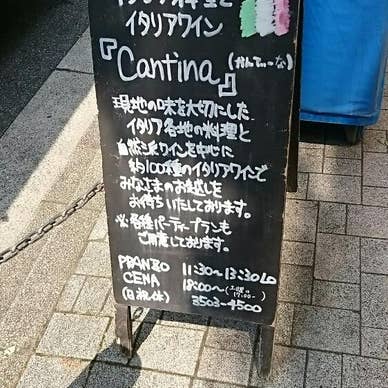 イタリア料理と
イタリアワイン
『Cantina』(かんてぃーな)
現地の味を大切にした
イタリア各地の料理と
自然派ワインを中心に
約100種のイタリアワインで
みなさまのお越しを
お待ちいたしております。
※各種パーティープランも
ご用意しております。
PRANZO 11:30〜13:30LO
CENA 18:00〜(土曜 17:00〜)
(日祝休) 3503-4500